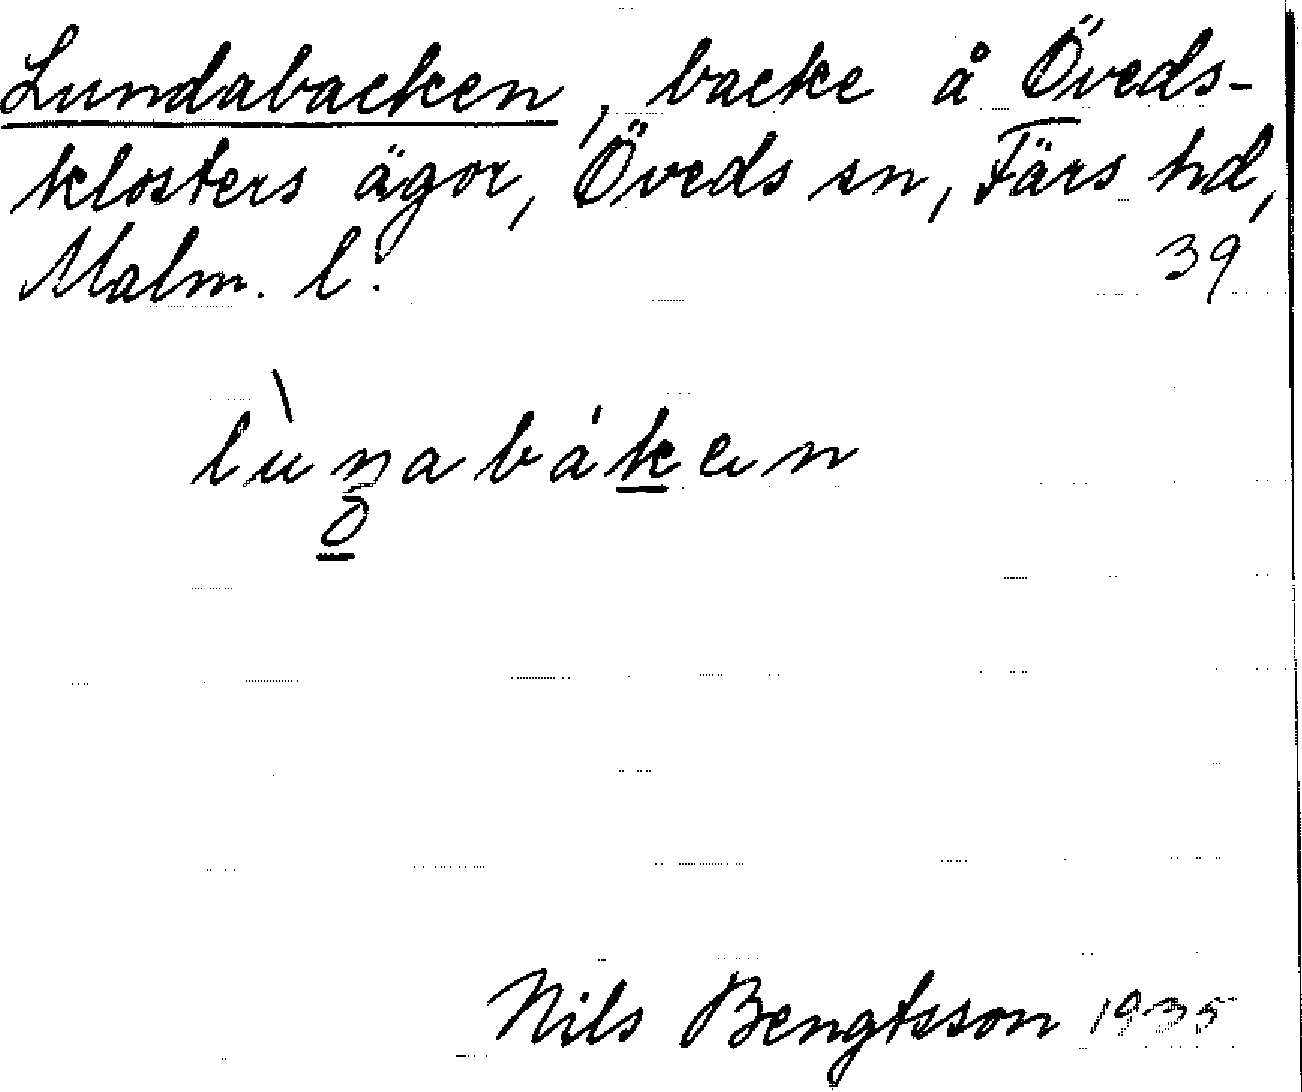 Lundabacken, backe å Öveds-
klosters ägor, Öveds sn, Färs hd,
Malm. l. 39
Nils Bengtsson 1935